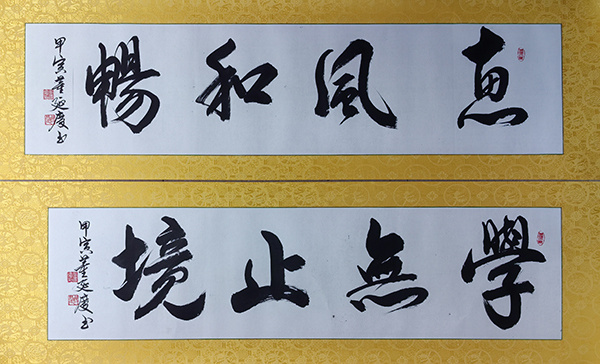 惠風和暢
甲寅董延慶书
學無止境
甲寅董延慶书